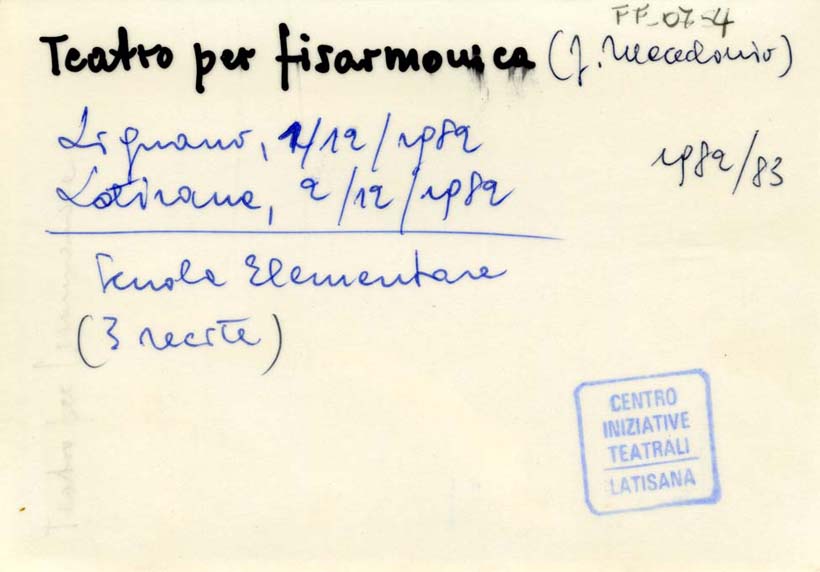 FF-07-4
Teatro per fisarmonica (J. Macedonio)
Lignano, 1/12/1982
Latisana, 2/12/1982
1982/83
Scuola Elementare
(3 recite)
CENTRO
INIZIATIVE
TEATRALI
LATISANA